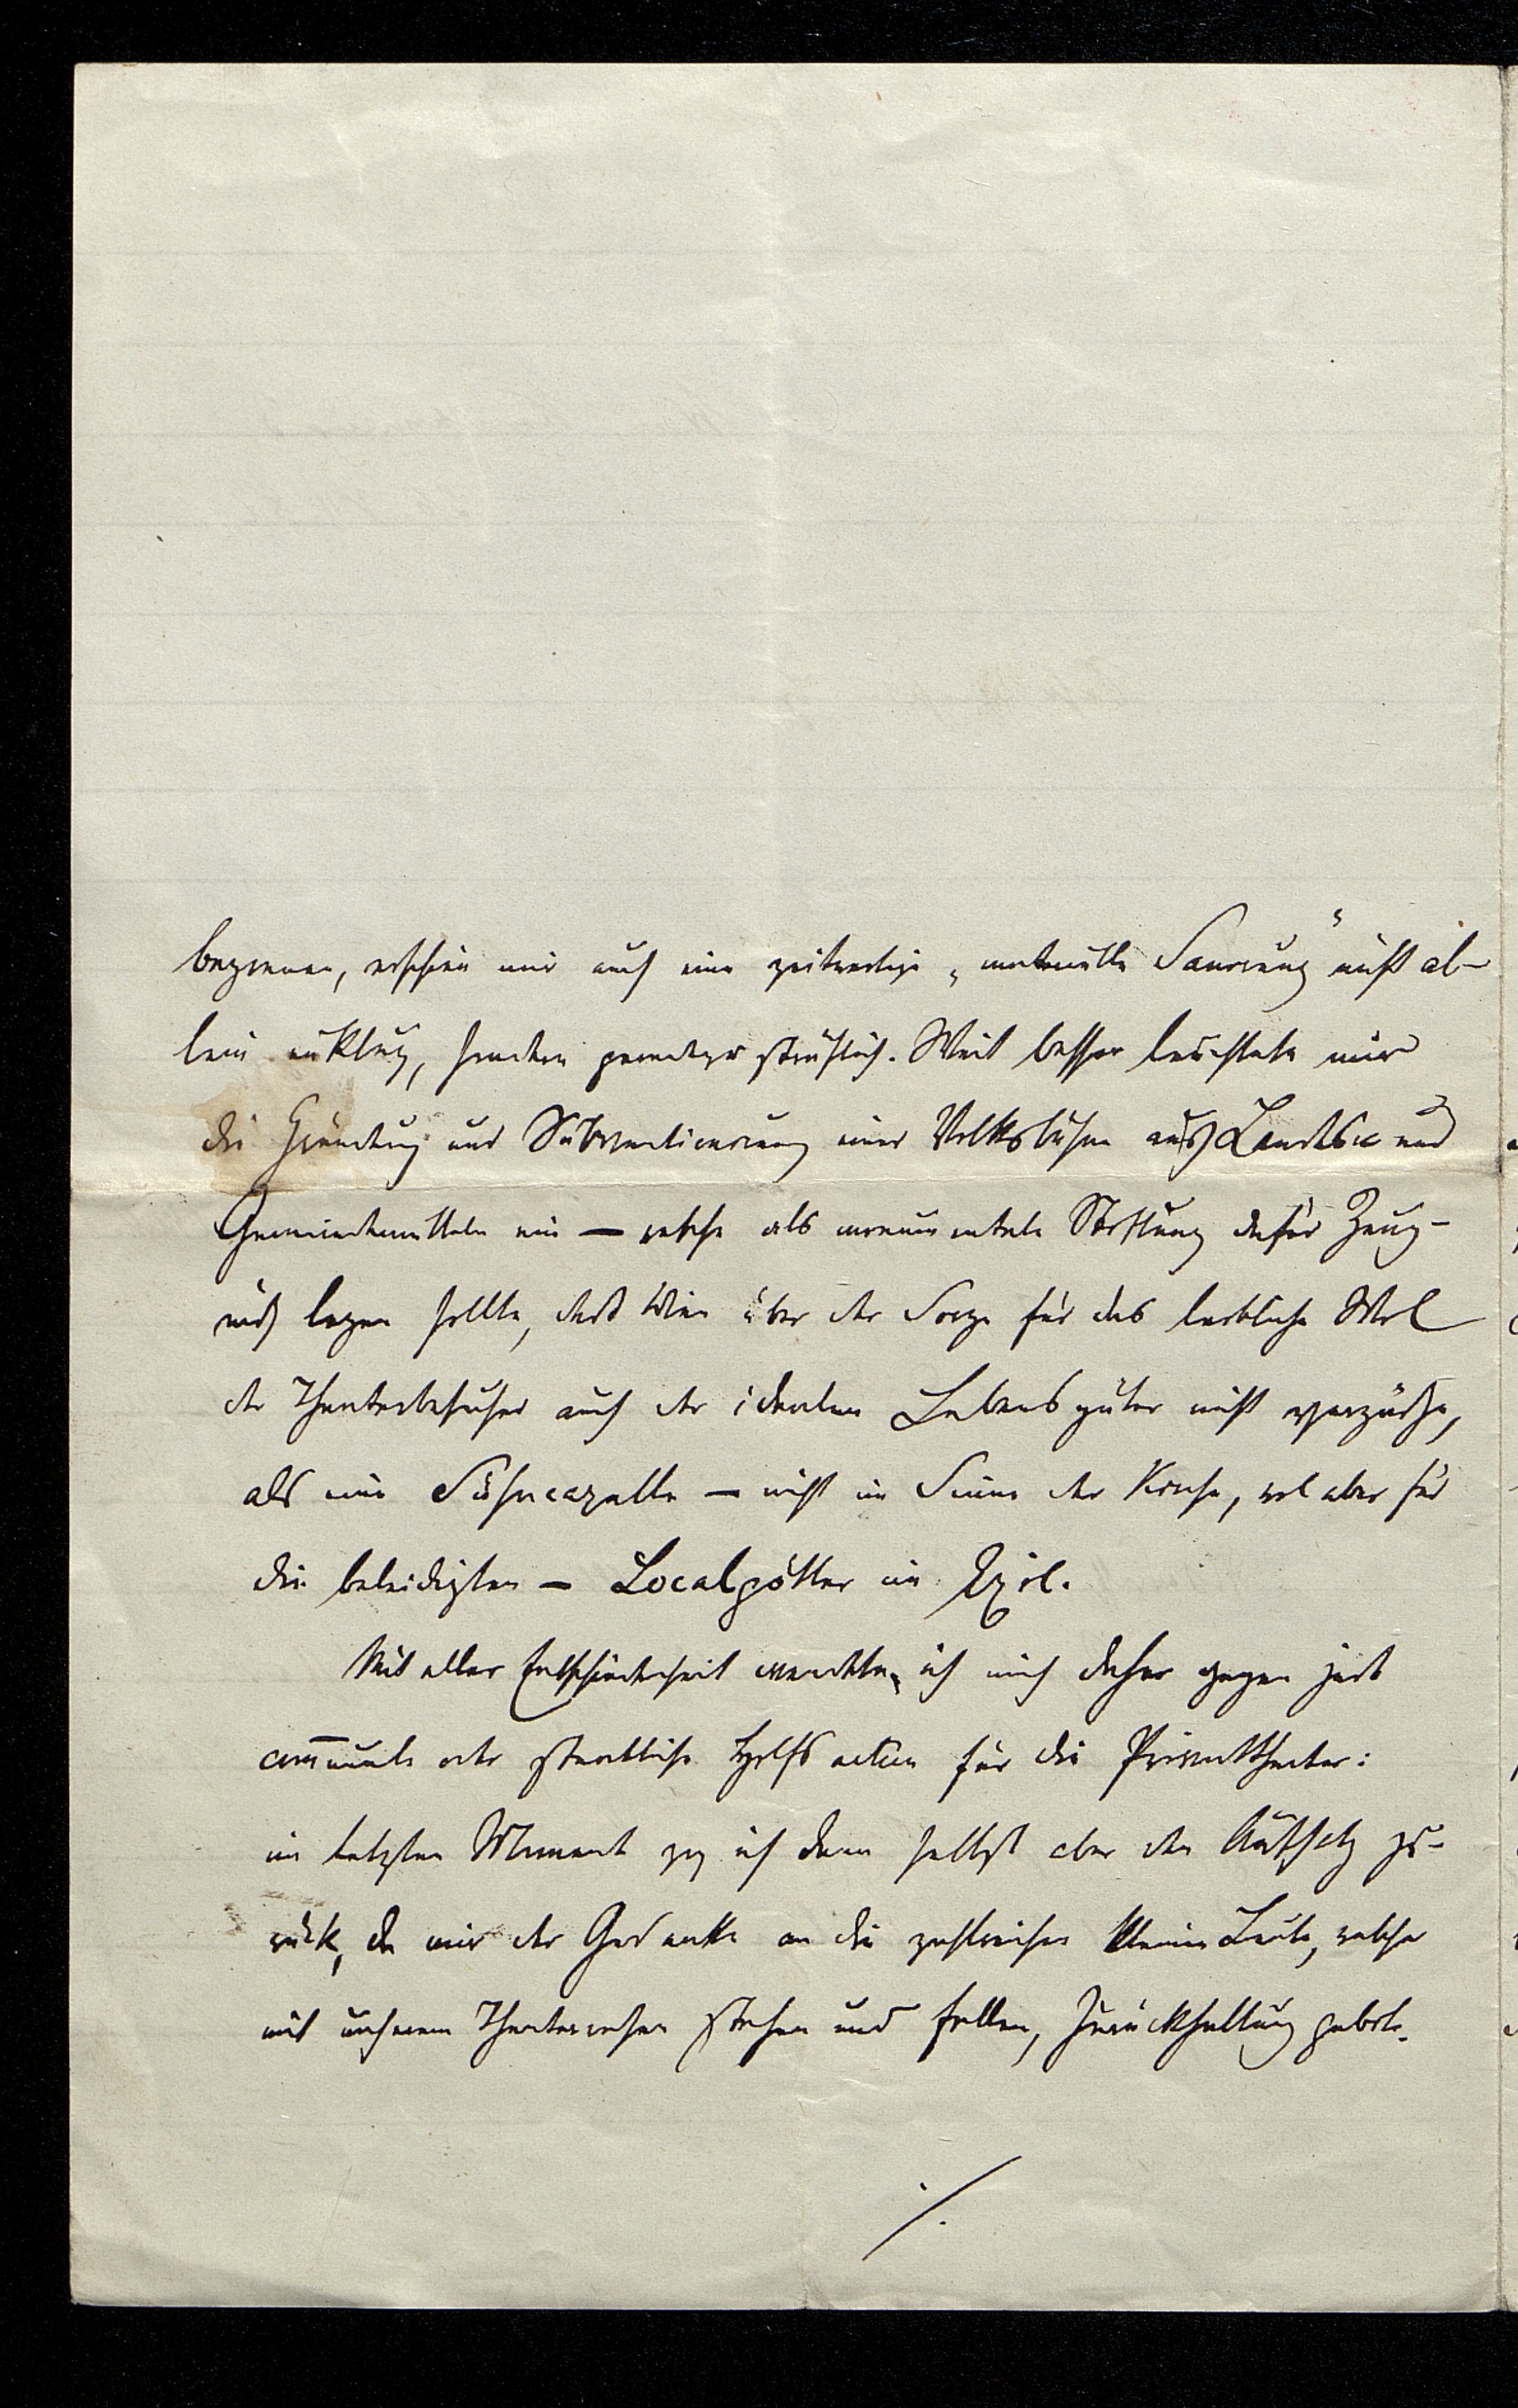 begonnen, erschien mir auch eine zeitweilige „materielle Sanirung“ nicht al-
lein unklug, sondern geradezu sträflich. Weit besser leuchtete mir
die Gründung und Subventionirung einer Volksbühne aus Landes- und
Gemeindemitteln ein – welche als monumentale Stiftung dafür Zeug-
niß legen sollte, daß Wien über der Sorge für das leibliche Wol
der Theaterbesucher auch der idealen Lebensgüter nicht vergäße,
als eine Sühncapelle – nicht im Sinne der Kirche, wol aber für
die beleidigten – Localgötter im Exil.
Mit aller Entschiedenheit wendete ich mich daher gegen jede
com̅unale oder staatliche Hilfsaction für die Privattheater:
im letzten Moment zog ich dann selbst aber den Aufsatz zu-
rück, da mir der Gedanke an die zahlreichen kleinen Leute, welche
mit unserem Theaterwesen stehen und fallen, Zurückhaltung gebot.
./.